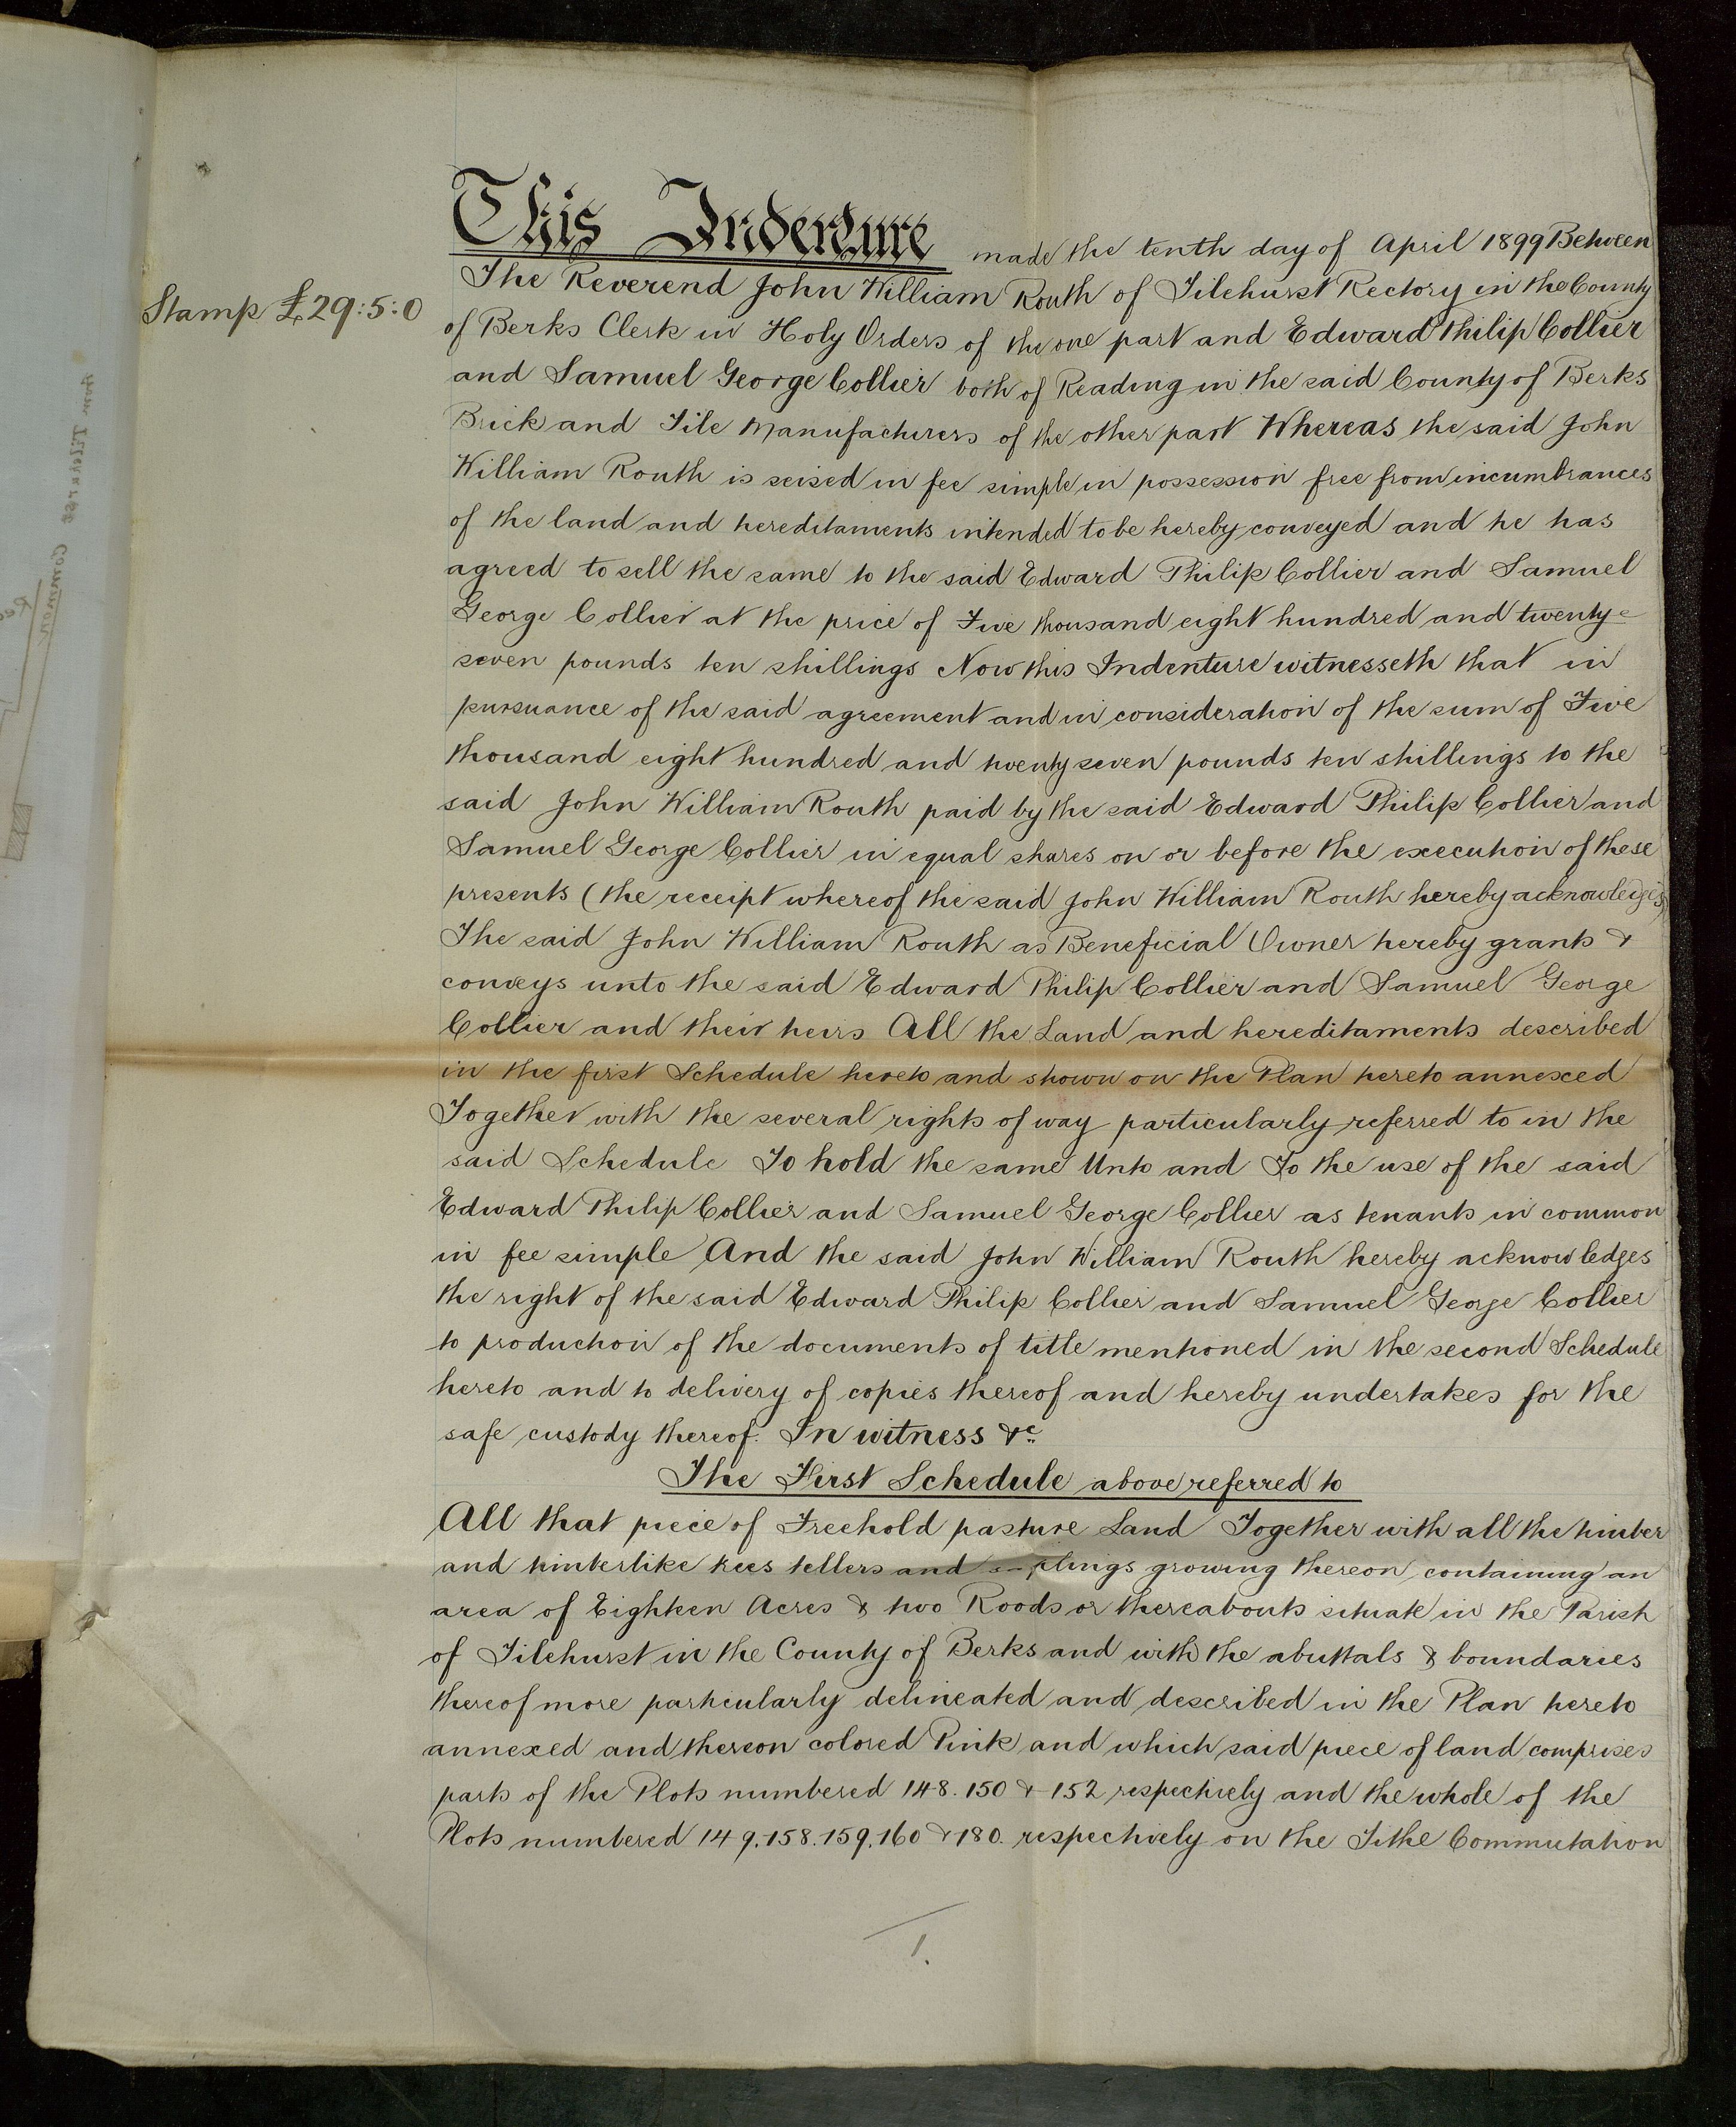 This Indenture made the tenth day of April 1899 Between
Stamp £29:5:0
The Reverend John William Routh of Tilehurst Rectory in the County
of Berks Clerk in Holy Orders of the one part and Edward Philip Collier
and Samuel George Collier both of Reading in the said County of Berks
Brick and Tile Manufacturers of the other part Whereas the said John
William Routh is seised in fee simple in possession free from incumbrances
of the land and hereditaments intended to be hereby conveyed and he has
agreed to sell the same to the said Edward Philip Collier and Samuel
George Collier at the price of Five thousand eight hundred and twenty
seven pounds ten shillings Now this Indenture witnesseth that in
pursuance of the said agreement and in consideration of the sum of Five
thousand eight hundred and twenty seven pounds ten shillings to the
said John William Routh paid by the said Edward Philip Collier and
Samuel George Collier in equal shares on or before the execution of these
presents (the receipt whereof the said John William Routh hereby acknowledges)
The said John William Routh as Beneficial Owner hereby grants &
conveys unto the said Edward Philip Collier and Samuel George
Collier and their heirs All the Land and hereditaments described
in the first Schedule hereto and shown on the Plan hereto annexed
Together with the several rights of way particularly referred to in the
said Schedule To hold the same Unto and To the use of the said
Edward Philip Collier and Samuel George Collier as tenants in common
in fee simple And the said John William Routh hereby acknowledges
the right of the said Edward Philip Collier and Samuel George Collier
to production of the documents of title mentioned in the second Schedule
hereto and to delivery of copies thereof and hereby undertakes for the
safe custody thereof. In witness &c
The First Schedule above referred to
All that piece of Freehold pasture Land Together with all the timber
and timberlike trees tellers and saplings growing thereon containing an
area of Eighteen Acres & two Roods or thereabouts situate in the Parish
of Tilehurst in the County of Berks and with the abuttals & boundaries
thereof more particularly delineated and described in the Plan hereto
annexed and thereon colored Pink and which said piece of land comprises
parts of the Plots numbered 148. 150 & 152 respectively and the whole of the
Plots numbered 149. 158. 159. 160 & 180. respectively on the Tithe Commutation
1.
Common